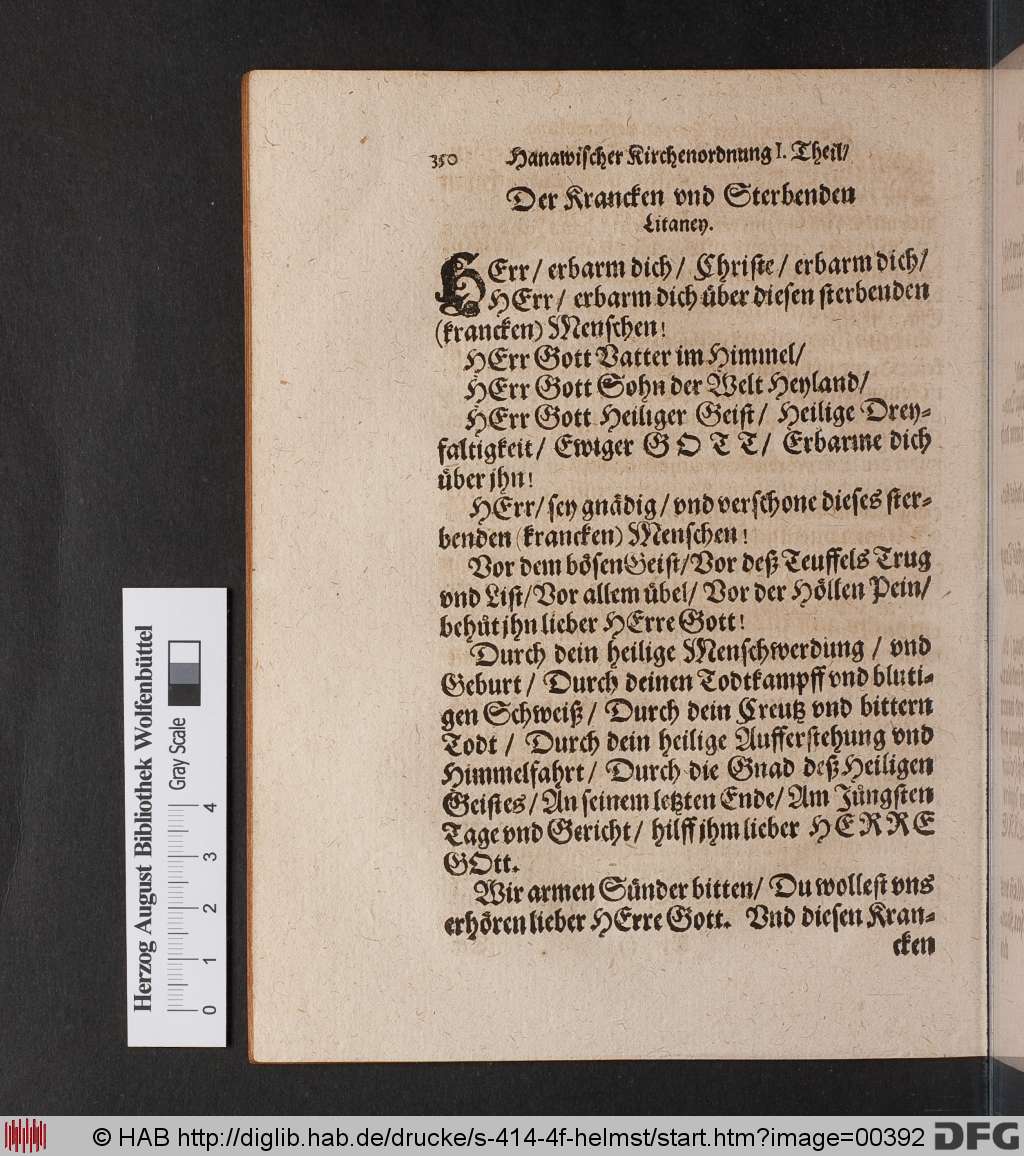 350 Hanawischer Kirchenordnung I. Theil/
Der Krancken vnd Sterbenden
Litaney.
HErr/ erbarm dich/ Christe/ erbarm dich/
HErr/ erbarm dich uͤber diesen sterbenden
(krancken) Menschen!
HErr Gott Vatter im Himmel/
HErr Gott Sohn der Welt Heyland/
HErr Gott Heiliger Geist/ Heilige Drey-
faltigkeit/ Ewiger GOTT/ Erbarme dich
uͤber jhn!
HErr/ sey gnaͤdig/ vnd verschone dieses ster-
benden (krancken) Menschen!
Vor dem boͤsen Geist/ Vor deß Teuffels Trug
vnd List/ Vor allem uͤbel/ Vor der Hoͤllen Pein/
behuͤt jhn lieber HErre Gott!
Durch dein heilige Menschwerdung/ vnd
Geburt/ Durch deinen Todtkampff vnd bluti-
gen Schweiß/ Durch dein Creutz vnd bittern
Todt/ Durch dein heilige Aufferstehung vnd
Himmelfahrt/ Durch die Gnad deß Heiligen
Geistes/ An seinem letzten Ende/ Am Juͤngsten
Tage vnd Gericht/ hilff jhm lieber HERRE
GOtt.
Wir armen Suͤnder bitten/ Du wollest vns
erhoͤren lieber HErre Gott. Vnd diesen Kran-
cken
Herzog August Bibliothek Wolfenbüttel
Gray Scale
0 1 2 3 4
© HAB http://diglib.hab.de/drucke/s-414-4f-helmst/start.htm?image=00392 DFG